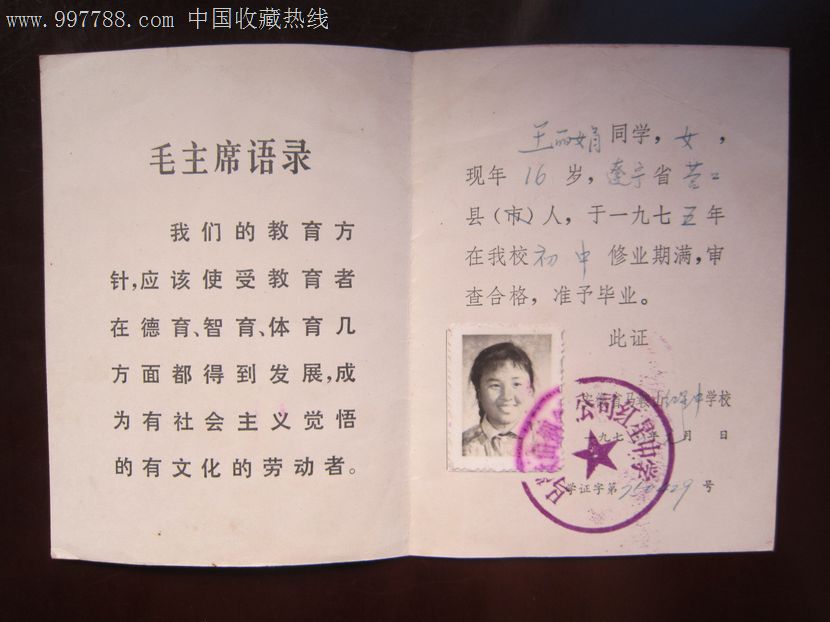 www.997788.com 中国收藏热线
毛主席语录
我们的教育方
针,应该使受教育者
在德育、智育、体育几
方面都得到发展,成
为有社会主义觉悟
的有文化的劳动者。
王丽娟同学，女，
现年16岁，辽宁省营口
县（市）人，于一九七五年
在我校初中修业期满,审
查合格，准予毕业。
此证
红星中学校
一九七 年 月 日
学证字第 号
公司红星中学